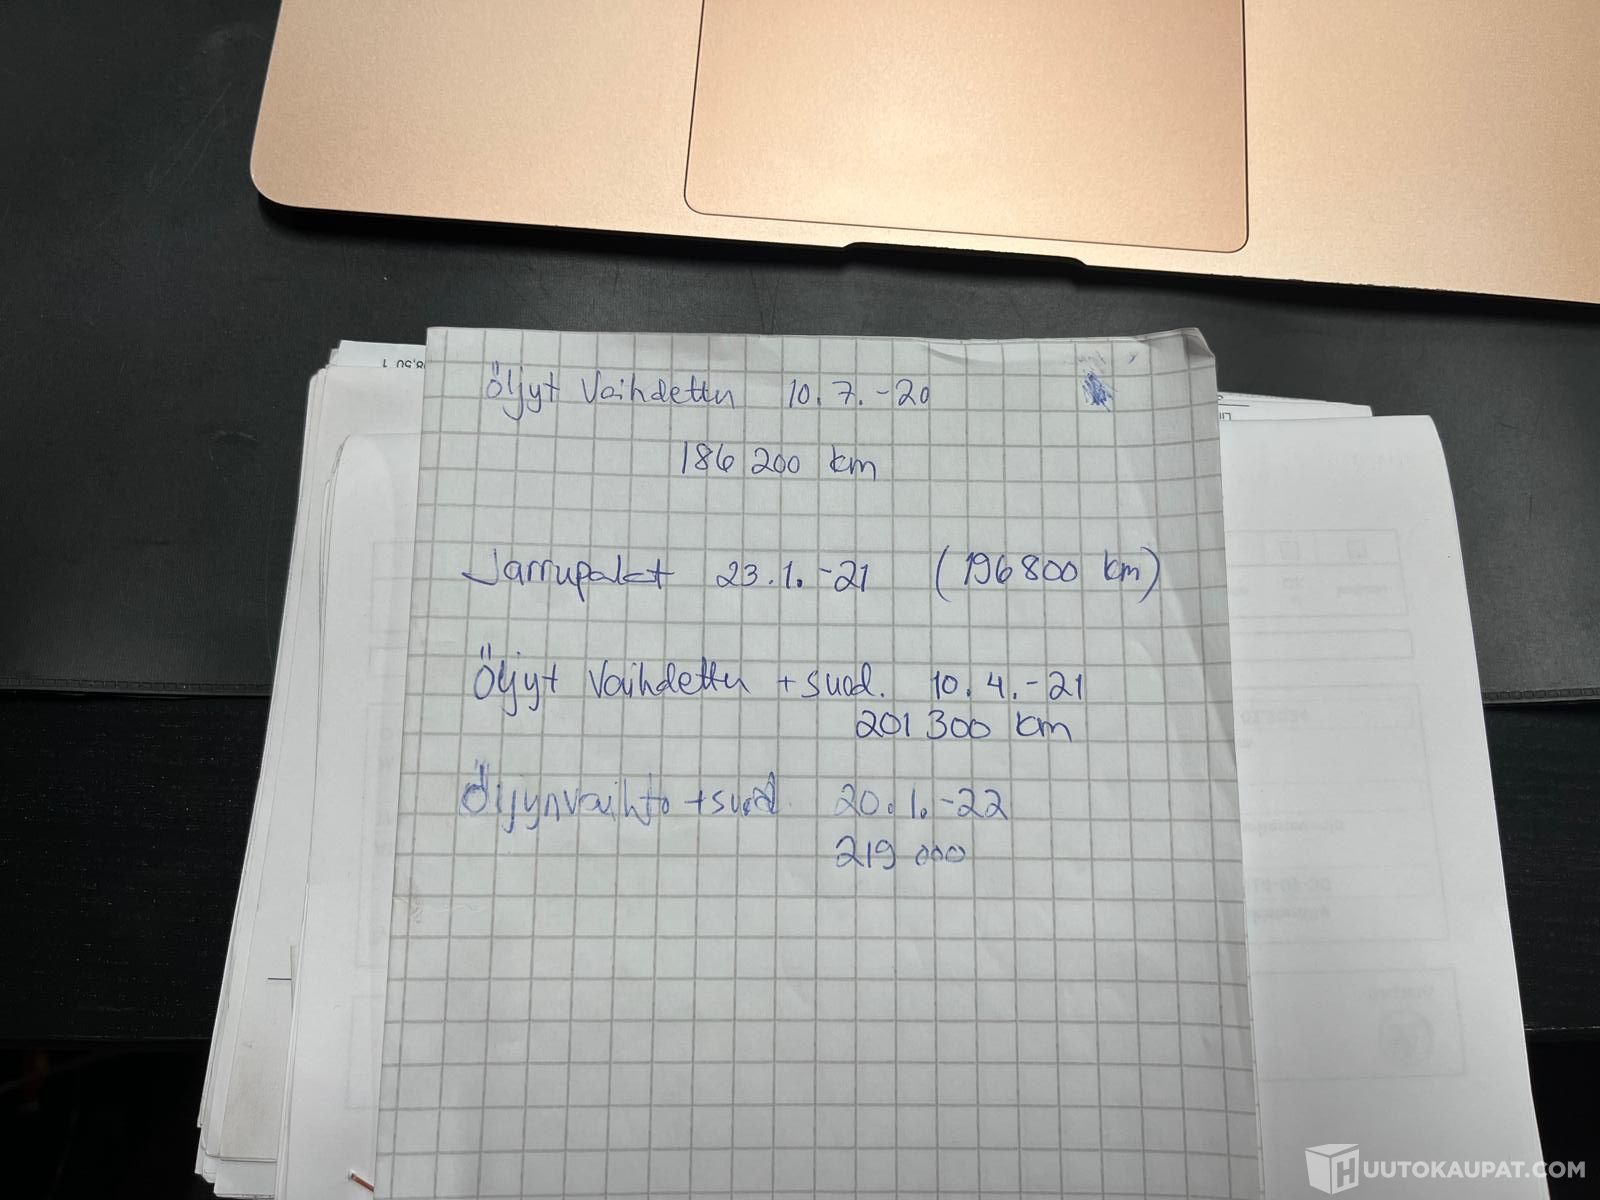 Öljyt Vaihdettu 10.7.-20
186 200 km
Jarrupalat 23.1.-21 (196800 km)
Öljyt Vaihdettu + suod. 10.4.-21
201 300 km
Öljynvaihto + suod. 20.1.-22
219 000
HUUTOKAUPAT.COM